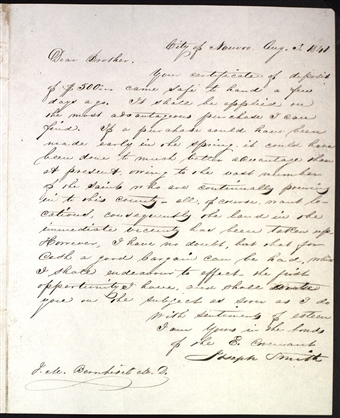 City of Nauvoo. Aug. 3. 1841
Dear Brother.
Your certificate of deposit
of $500.00 came safe to hand a few
days ago. It shall be applied on
the most advantageous purchase I can
find. If a purchase could have been
made early in the spring, it could have
been done to much better advantage than
at present, owing to the vast number
of the saints who are continually pouring
in to this county - all, of course, want lo-
cations, consequently the land in the
immediate vicinity has been taken up
However, I have no doubt, but that for
Cash a good bargain can be had, which
I shall endeavour to effect the first
opportunity I have, and shall write
you on the subject as soon as I do
With sentiments of esteem
I am Yours in the bonds
of the E. Covenant
Joseph Smith
J. M. Bernhisel M. D.